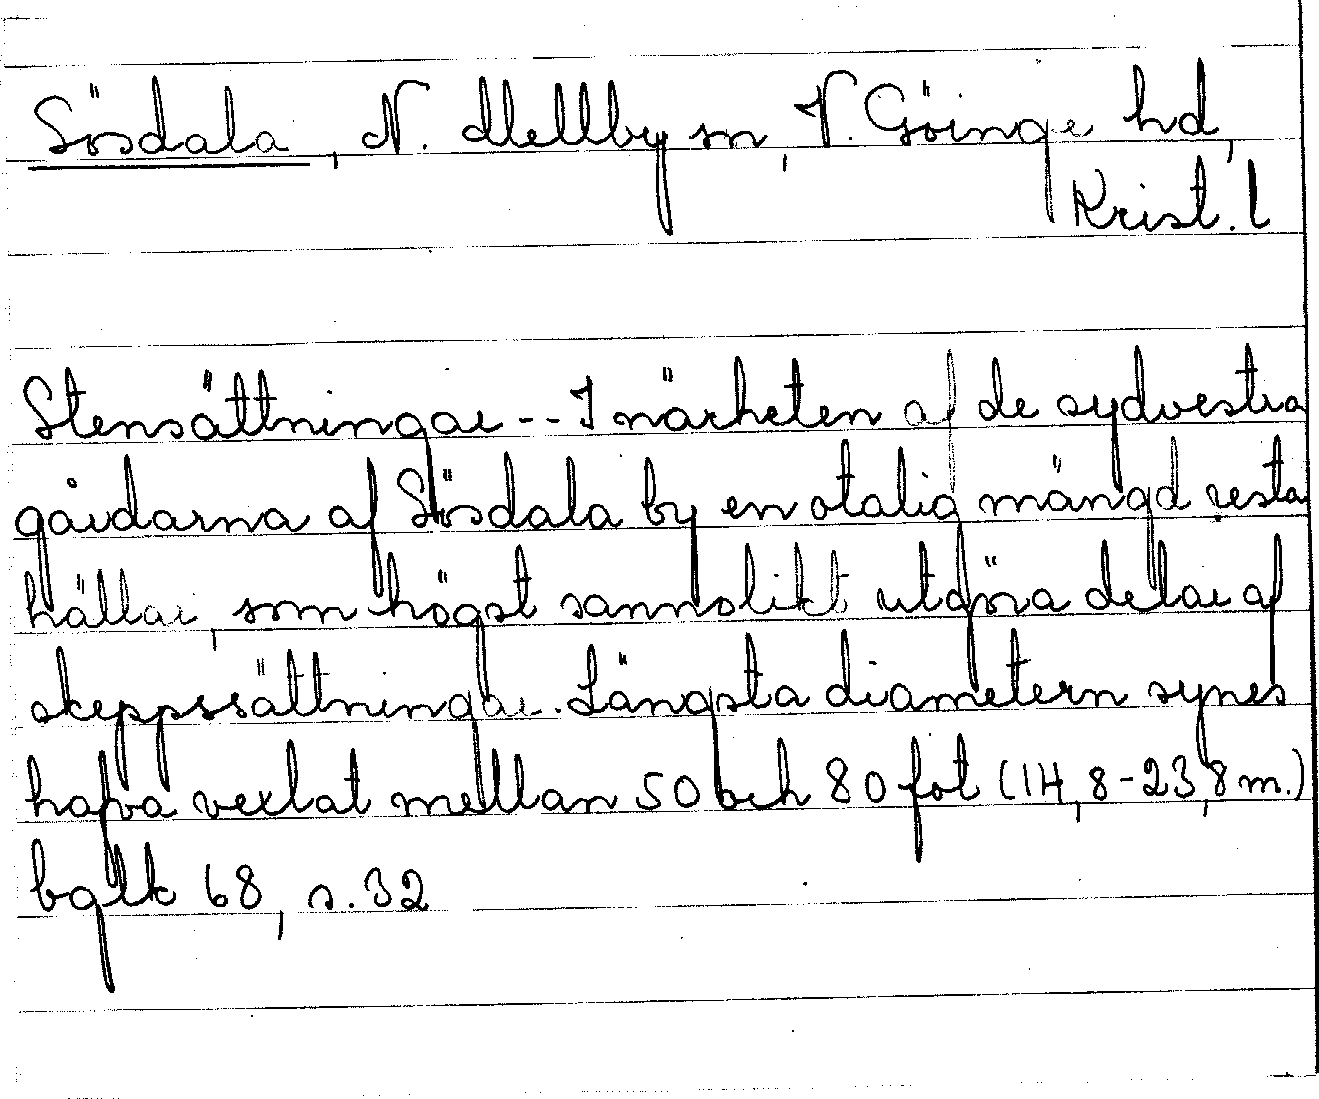 Sösdala, N. Mellby sn, V. Göinge hd,
Krist. l
Stensättningar -- I närheten af de sydvestra
gårdarna af Sösdala by en otalig mängd resta
hällar, som högst sannolikt utgöra delar af
skeppssättningar. Längsta diametern synes
hafva vexlat mellan 50 och 80 fot (14,8-23,8 m.)
bglk 68, s. 32